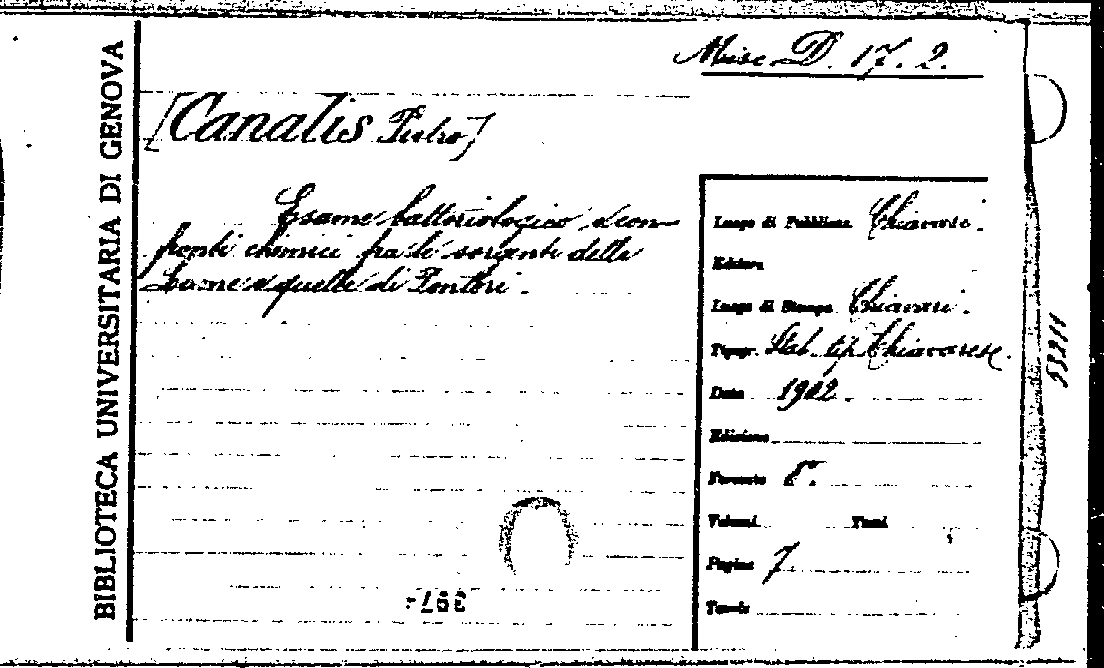 BIBLIOTECA UNIVERSITARIA DI GENOVA
Misc. D. 17. 2.
[Canalis Pietro]
Esame batteriologico e con-
fronti chimici fra le sorgenti delle
Lame e quelle di
Luogo di Pubblicaz. Chiavari.
Editore
Luogo di Stampa Chiavari.
Tipogr. Stab. tip. Chiavarese.
Data 1902.
Edizione
Formato 8°.
Volumi Tomi
Pagine 7.
Tavole
53211